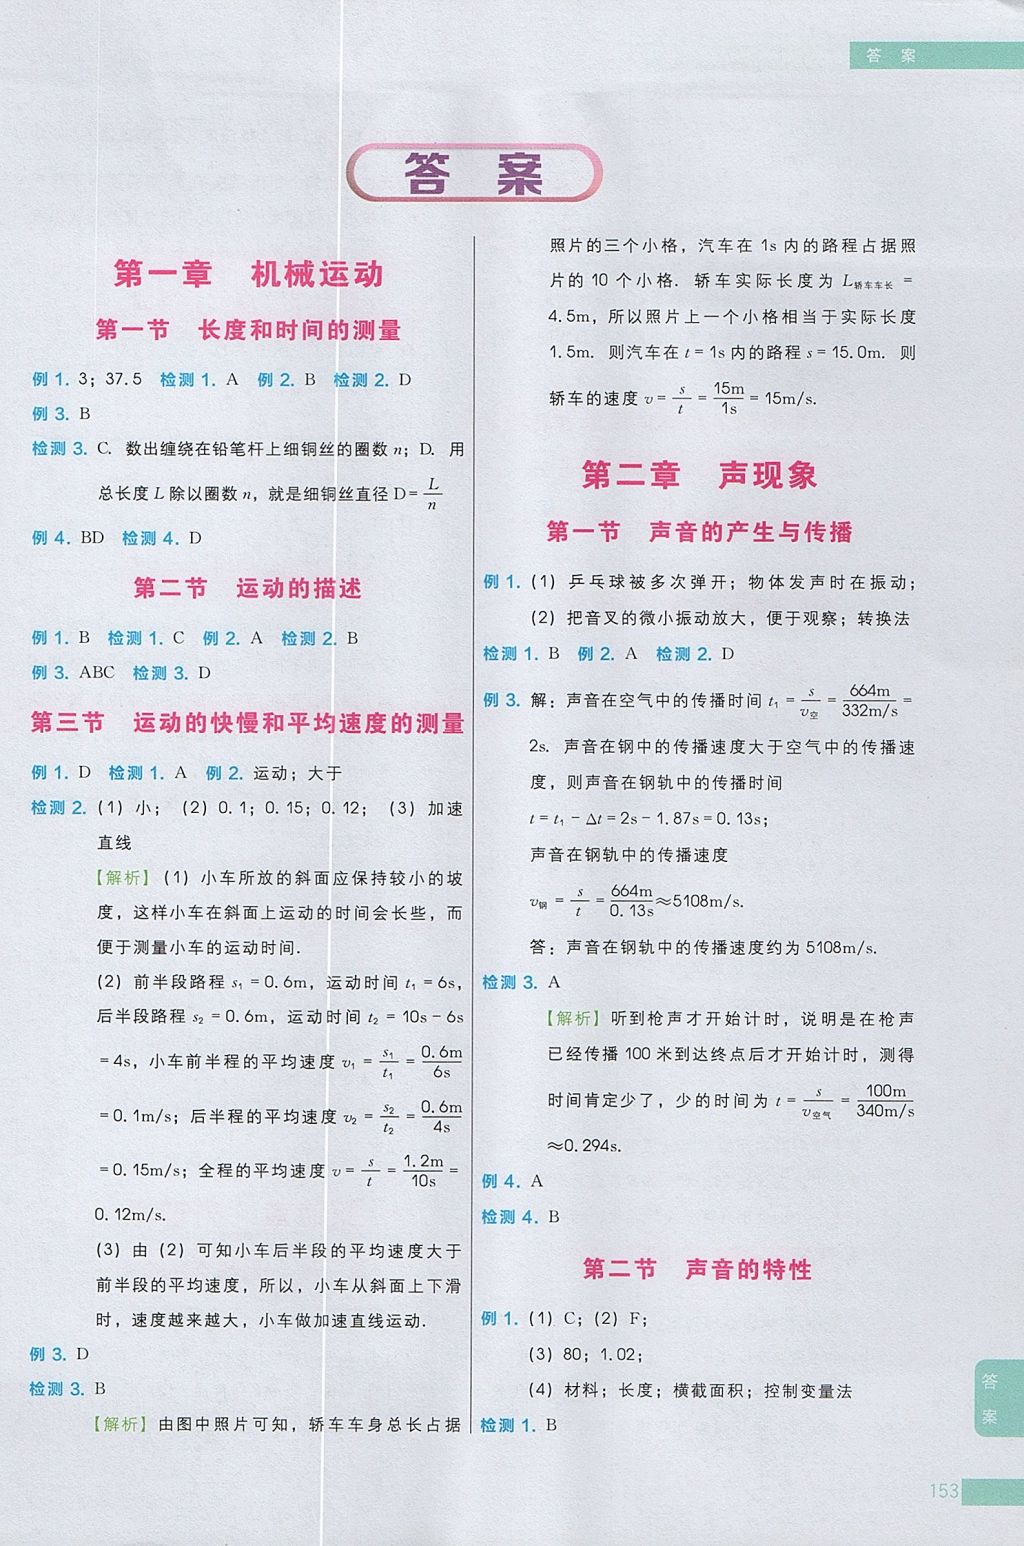 答 案
答 案
第一章 机械运动
第一节 长度和时间的测量
例 1. 3；37.5 检测 1. A 例 2. B 检测 2. D
例 3. B
检测 3. C. 数出缠绕在铅笔杆上细铜丝的圈数 n；D. 用
总长度 L 除以圈数 n，就是细铜丝直径 D=L/n
例 4. BD 检测 4. D
第二节 运动的描述
例 1. B 检测 1. C 例 2. A 检测 2. B
例 3. ABC 检测 3. D
第三节 运动的快慢和平均速度的测量
例 1. D 检测 1. A 例 2. 运动；大于
检测 2. (1) 小； (2) 0.1；0.15；0.12； (3) 加速
直线
【解析】(1) 小车所放的斜面应保持较小的坡
度，这样小车在斜面上运动的时间会长些，而
便于测量小车的运动时间.
(2) 前半段路程 s₁=0.6m，运动时间 t₁=6s，
后半段路程 s₂=0.6m，运动时间 t₂=10s-6s
=4s，小车前半程的平均速度 v₁=s₁/t₁=0.6m/6s
=0.1m/s；后半程的平均速度 v₂=s₂/t₂=0.6m/4s
=0.15m/s；全程的平均速度 v=s/t=1.2m/10s=
0.12m/s.
(3) 由 (2) 可知小车后半段的平均速度大于
前半段的平均速度，所以，小车从斜面上下滑
时，速度越来越大，小车做加速直线运动.
例 3. D
检测 3. B
【解析】由图中照片可知，轿车车身总长占据
照片的三个小格，汽车在 1s 内的路程占据照
片的 10 个小格. 轿车实际长度为 L轿车车长=
4.5m，所以照片上一个小格相当于实际长度
1.5m. 则汽车在 t=1s 内的路程 s=15.0m. 则
轿车的速度 v=s/t=15m/1s=15m/s.
第二章 声现象
第一节 声音的产生与传播
例 1. (1) 乒乓球被多次弹开；物体发声时在振动；
(2) 把音叉的微小振动放大，便于观察；转换法
检测 1. B 例 2. A 检测 2. D
例 3. 解：声音在空气中的传播时间 t₁=s/v空=664m/332m/s=
2s. 声音在钢中的传播速度大于空气中的传播速
度，则声音在钢轨中的传播时间
t=t₁-Δt=2s-1.87s=0.13s；
声音在钢轨中的传播速度
v钢=s/t=664m/0.13s≈5108m/s.
答：声音在钢轨中的传播速度约为 5108m/s.
检测 3. A
【解析】听到枪声才开始计时，说明是在枪声
已经传播 100 米到达终点后才开始计时，测得
时间肯定少了，少的时间为 t=s/v空气=100m/340m/s
≈0.294s.
例 4. A
检测 4. B
第二节 声音的特性
例 1. (1) C；(2) F；
(3) 80；1.02；
(4) 材料；长度；横截面积；控制变量法
检测 1. B
答
案
153